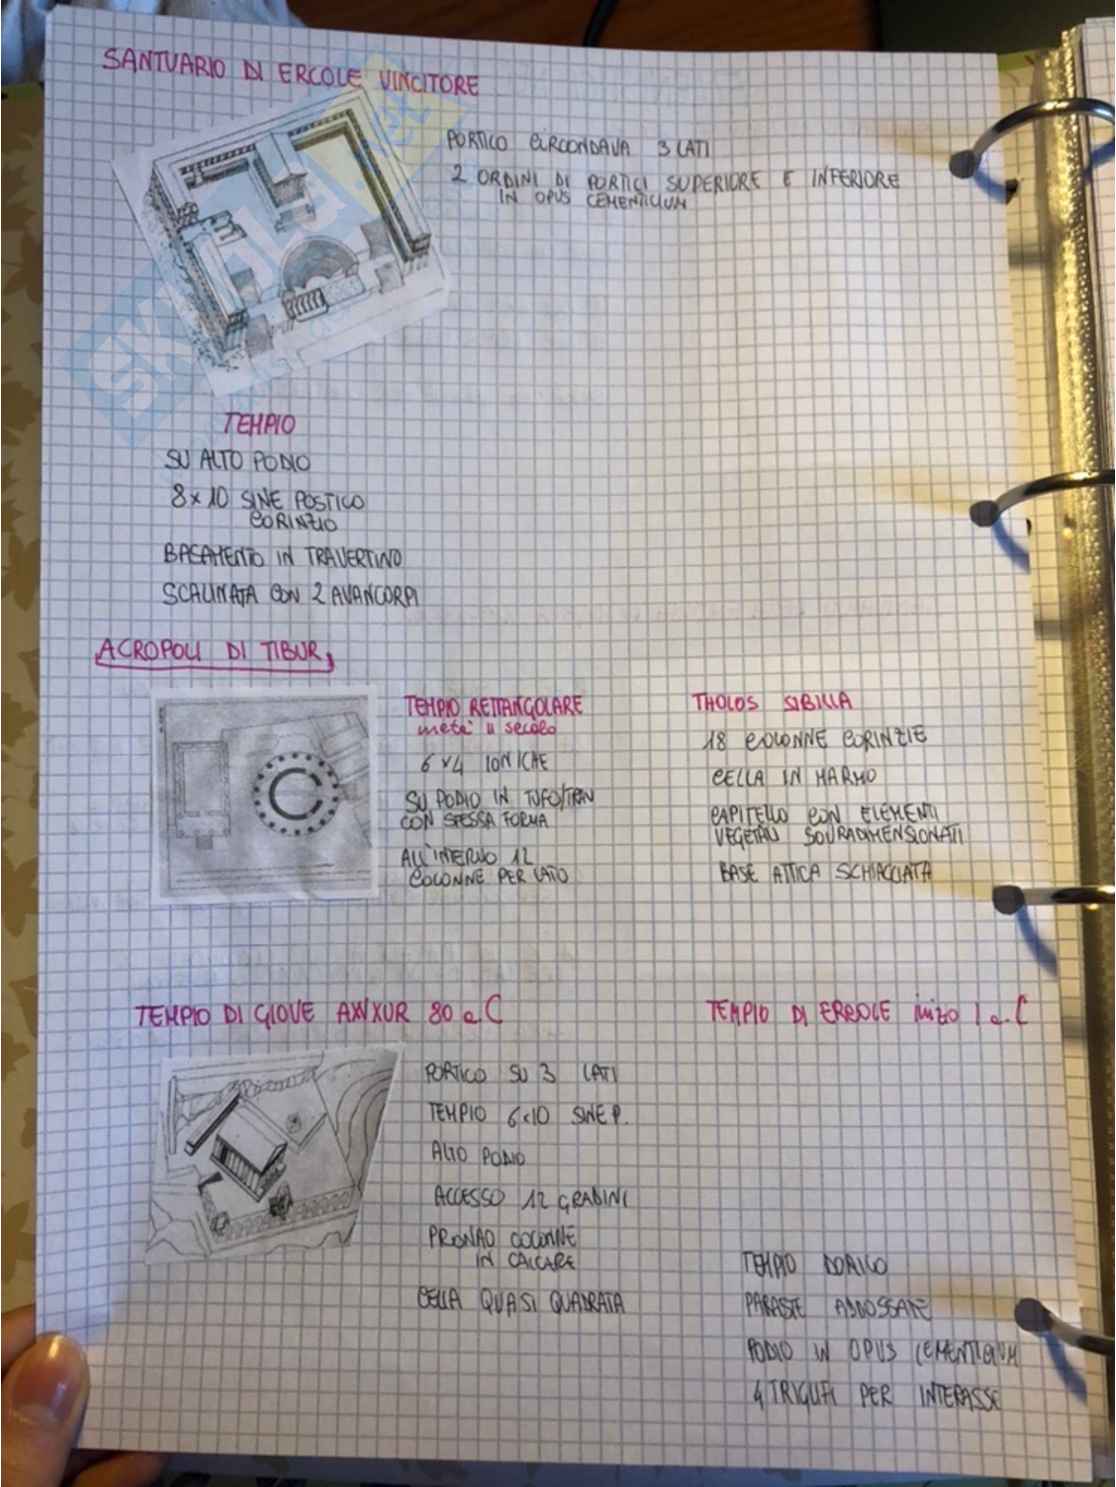 SANTUARIO DI ERCOLE VINCITORE
PORTICO CIRCONDAVA 3 LATI
2 ORDINI DI PORTICI SUPERIORE E INFERIORE
IN OPUS CEMENTICIUM
TEMPIO
SU ALTO PODIO
8x10 SINE POSTICO
CORINZIO
BASAMENTO IN TRAVERTINO
SCALINATA CON 2 AVANCORPI
ACROPOLI DI TIBUR
TEMPIO RETTANGOLARE
metà II secolo
6x4 IONICHE
SU PODIO IN TUFO/TRAV
CON STESSA FORMA
ALL'INTERNO 12
COLONNE PER LATO
THOLOS SIBILLA
18 COLONNE CORINZIE
CELLA IN MARMO
CAPITELLO CON ELEMENTI
VEGETALI SOVRADIMENSIONATI
BASE ATTICA SCHIACCIATA
TEMPIO DI GIOVE ANXUR 80 a.C
PORTICO SU 3 LATI
TEMPIO 6x10 SINE P.
ALTO PODIO
ACCESSO 12 GRADINI
PRONAO COLONNE
IN CALCARE
CELLA QUASI QUADRATA
TEMPIO DI ERCOLE inizio I a.C
TEMPIO DORICO
PARASTE ADDOSSATE
PODIO IN OPUS CEMENTICIUM
4 TRIGLIFI PER INTERASSE